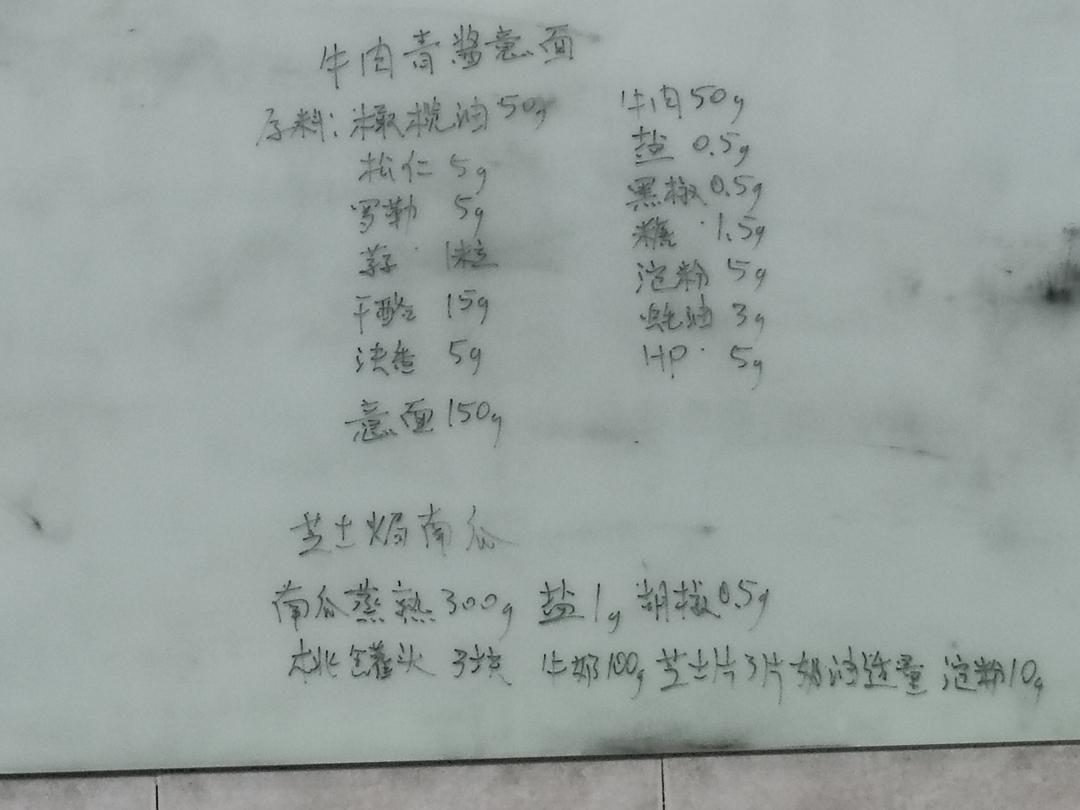 牛肉青酱意面
原料：橄榄油 50g 牛肉 50g
松仁 5g 盐 0.5g
罗勒 5g 黑椒 0.5g
蒜 1粒 糖 1.5g
干酪 15g 淀粉 5g
法香 5g 蚝油 3g
意面 150g HP 5g
芝士焗南瓜
南瓜蒸熟 300g 盐 1g 胡椒 0.5g
桃罐头 3块 牛奶 100g 芝士片 3片 奶油适量 淀粉 10g